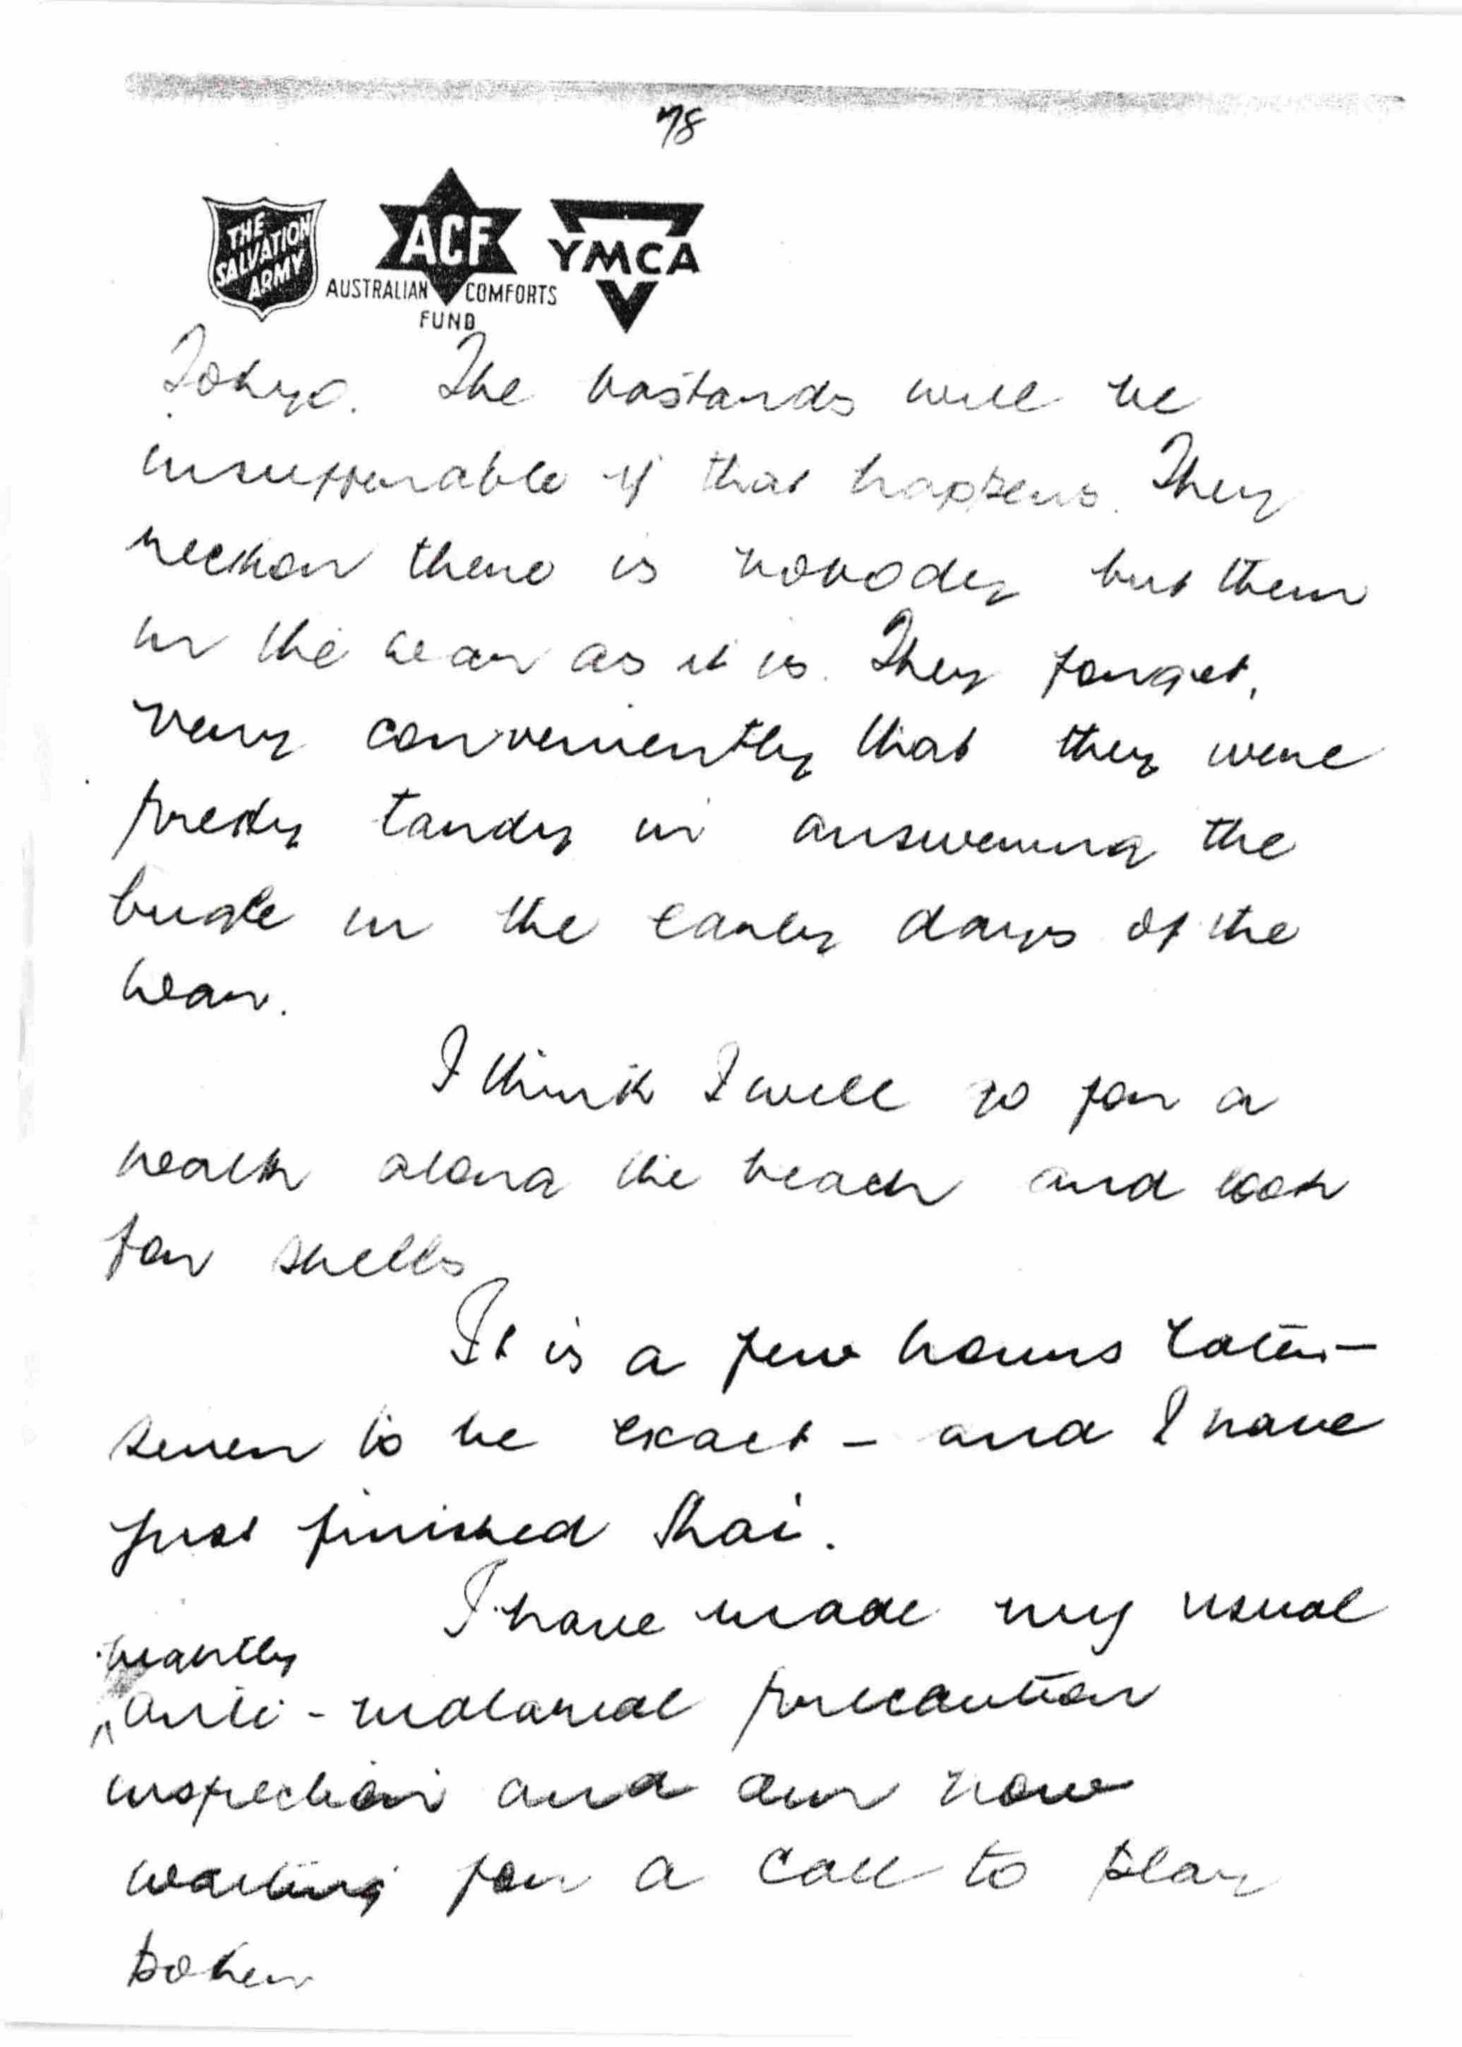 78
THE
SALVATION
ARMY
ACF
AUSTRALIAN COMFORTS
FUND
YMCA
Tokyo. The bastards will be
insufferable if that happens. They
reckon there is nobody but them
in the war as it is. They forget,
very conveniently that they were
pretty tardy in answering the
bugle in the early days of the
war.
I think I will go for a
walk along the beach and look
for shells
It is a few hours later -
seven to be exact - and I have
just finished
I have made my usual
nightly
anti-malarial precaution
inspection and am now
waiting for a call to play
poker